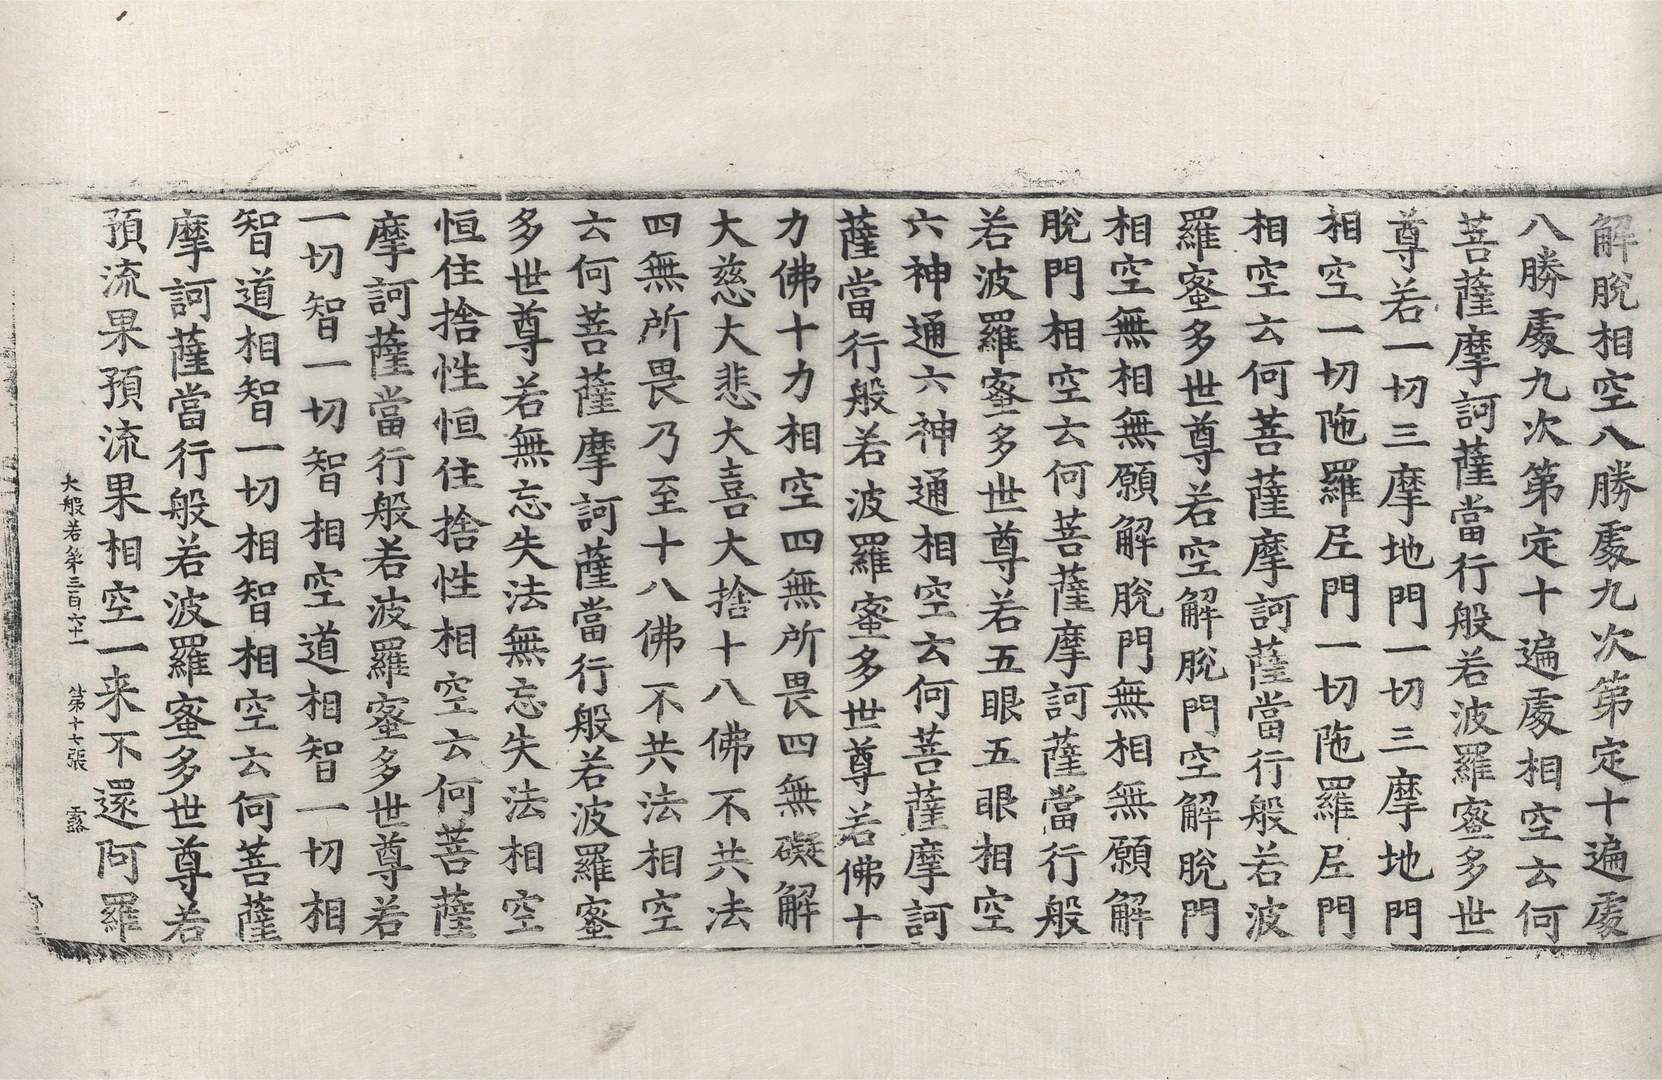 解脫相空八勝處九次第定十遍處
八勝處九次第定十遍處相空云何
菩薩摩訶薩當行般若波羅蜜多世
尊若一切三摩地門一切三摩地門
相空一切陁羅尼門一切陁羅尼門
相空云何菩薩摩訶薩當行般若波
羅蜜多世尊若空解脫門空解脫門
相空無相無願解脫門無相無願解
脫門相空云何菩薩摩訶薩當行般
若波羅蜜多世尊若五眼五眼相空
六神通六神通相空云何菩薩摩訶
薩當行般若波羅蜜多世尊若佛十
力佛十力相空四無所畏四無礙解
大慈大悲大喜大捨十八佛不共法
四無所畏乃至十八佛不共法相空
云何菩薩摩訶薩當行般若波羅蜜
多世尊若無忘失法無忘失法相空
恒住捨性恒住捨性相空云何菩薩
摩訶薩當行般若波羅蜜多世尊若
一切智一切智相空道相智一切相
智道相智一切相智相空云何菩薩
摩訶薩當行般若波羅蜜多世尊若
預流果預流果相空一来不還阿羅
大般若第三百六十一 第十七張 露